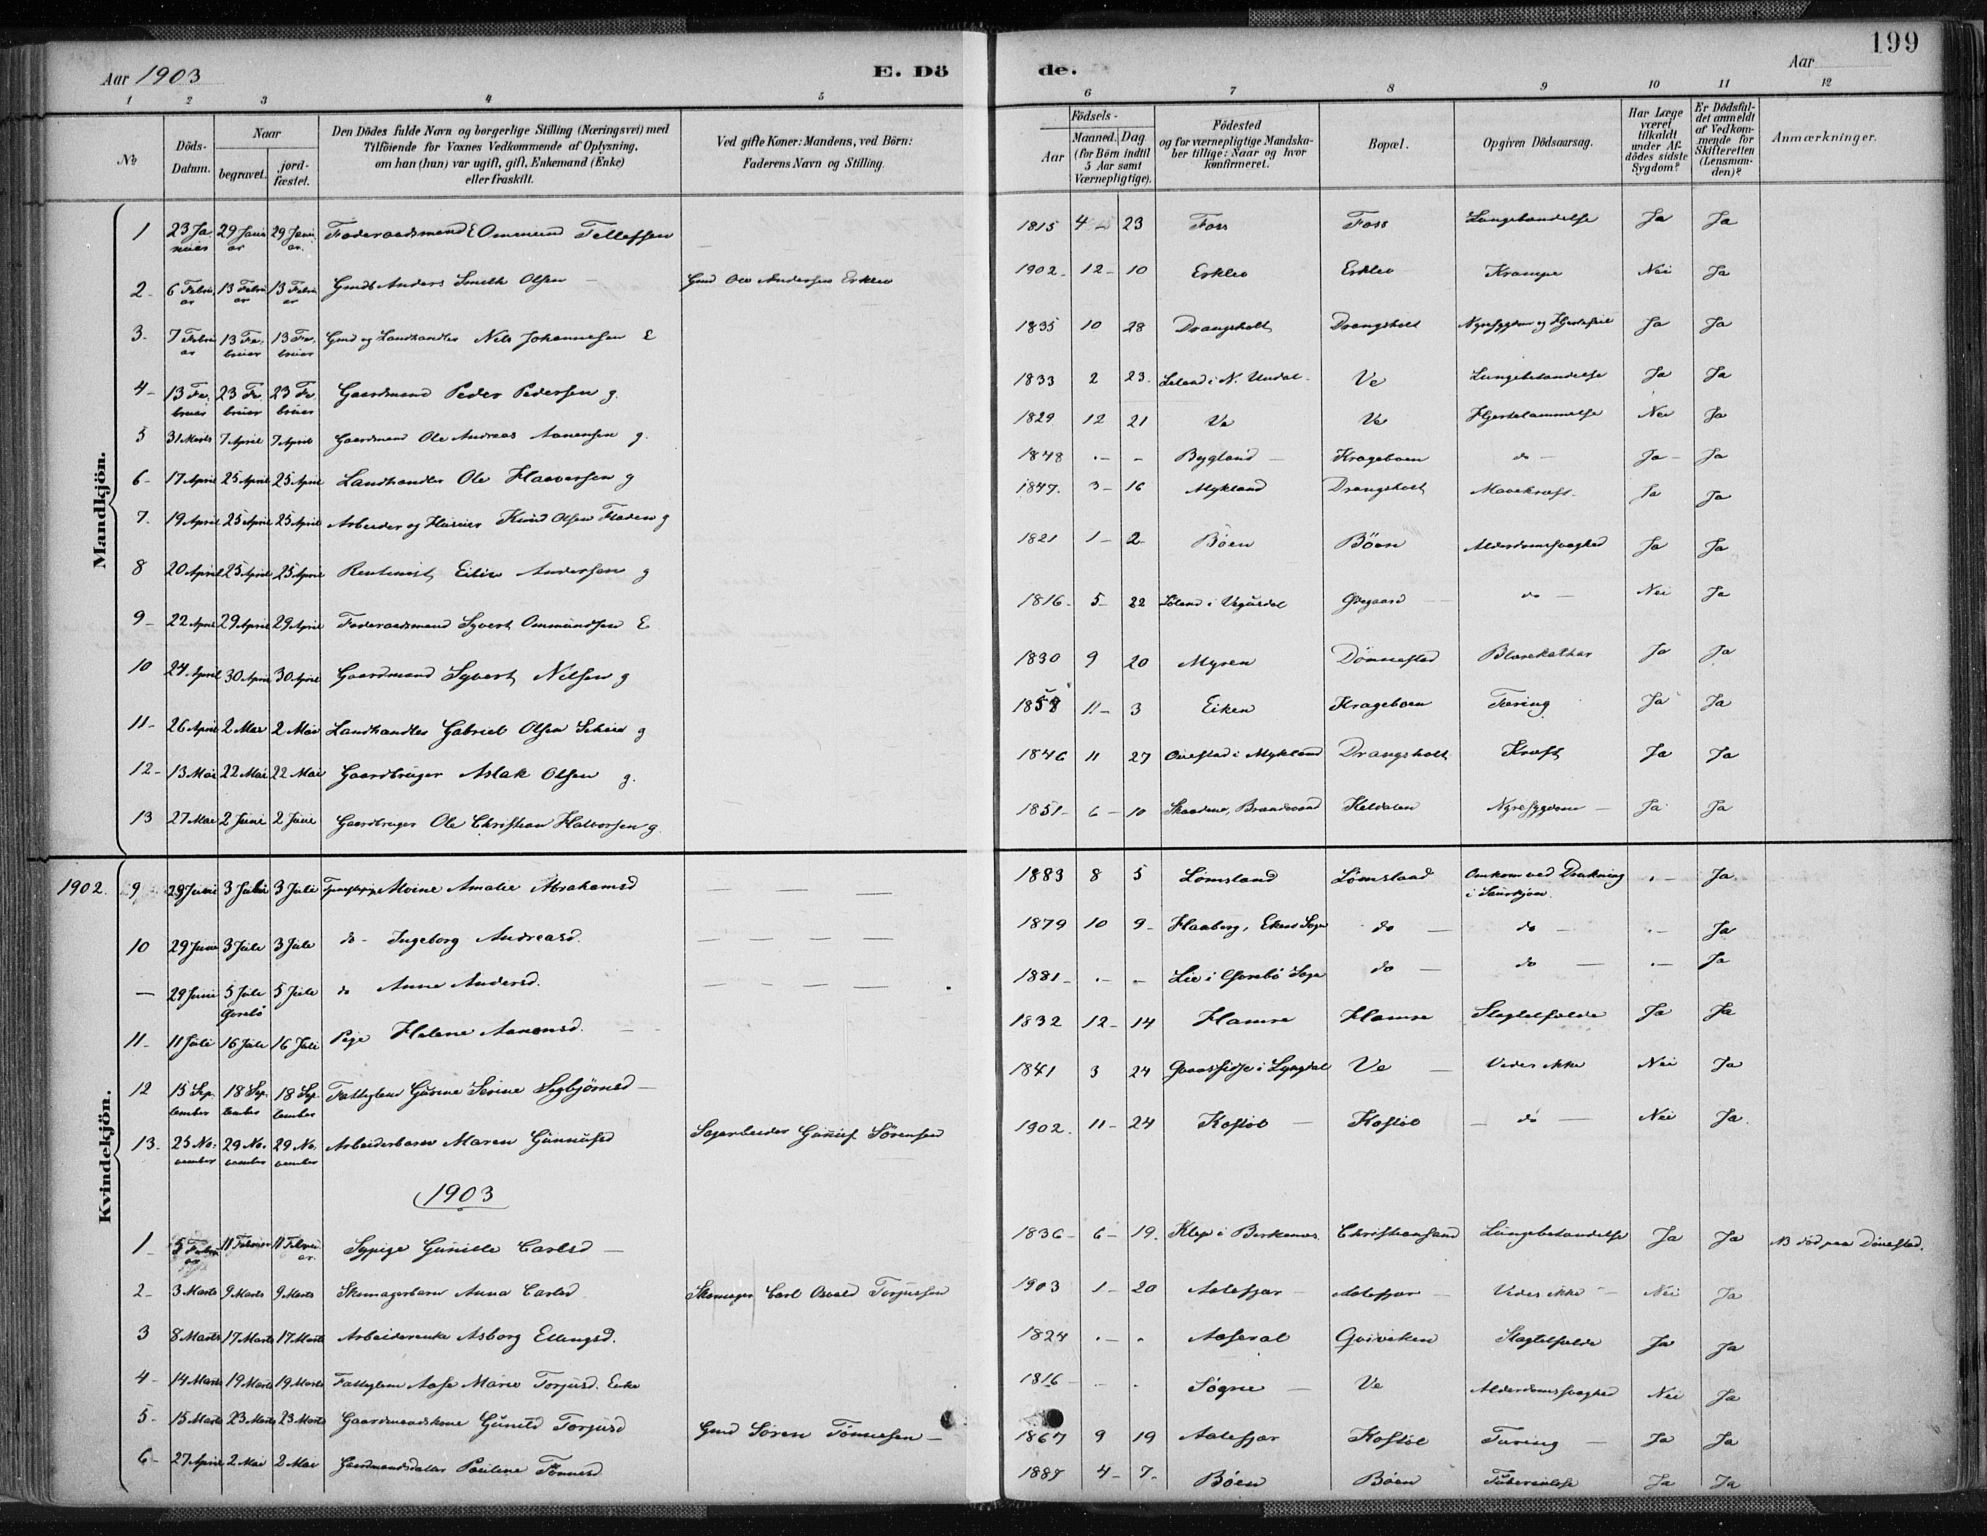 Aar 1903
E. Dö
de.
Aar
199
1 2 3 4 5 6 7 8 9 10 11 12
№
Döds-
Datum.
Naar
begravet.
jord-
fæstet.
Den Dödes fulde Navn og borgerlige Stilling (Næringsvei) med
Tilföiende for Voxnes Vedkommende af Oplysning,
om han (hun) var ugift, gift, Enkemand (Enke)
eller fraskilt.
Ved gifte Koner: Mandens, ved Börn:
Faderens Navn og Stilling.
Födsels-
Aar
Maaned. Dag
(for Börn indtil
5 Aar samt
Værnepligtige).
Födested
og for værnepligtige Mandska-
ber tillige: Naar og hvor
konfirmeret.
Bopæl.
Opgiven Dödsaarsag.
Har Læge
været
tilkaldt
under Af-
dödes sidste
Sygdom?
Er Dödsfal-
det anmeldt
af Vedkom-
mende for
Skifteretten
(Lensman-
den)?
Anmærkninger.
Mandkjön.
1 23 Januar 29 Januar 29 Januar Foderaadsmand E Ommund Tellefsen 1815 4 23 Foss Foss Lungebetændelse Ja Ja
2 6 Februar 13 Februar 13 Februar Gmds Anders Smith Olsen Gmd Ole Andersen Erkleo 1902 12 10 Erkleo Erkleo Krampe Nei Ja
3 7 Februar 13 Februar 13 Februar Gmd og Landhandler Nils Johannesen E 1835 10 28 Drangsholt Drangsholt Nyresygdom og Hjertefeil Ja Ja
4 13 Februar 23 Februar 23 Februar Gaardmand Peder Pedersen g. 1833 2 23 i N. Undal Ve Lungebetændelse Ja Ja
5 31 Marts 7 April 7 April Gaardmand Ole Andreas Aanensen g. 1829 12 21 Ve Ve Hjertelammelse Nei Ja
6 17 April 25 April 25 April Landhandler Ole Haavorsen g 1848 - - Bygland Krageboen do Ja Ja
7 19 April 25 April 25 April Arbeider og Knud Olsen Fladen g 1847 3 16 Mykland Drangsholt Mavekræft Ja Ja
8 20 April 25 April 25 April Rentenist Eilie Andersen g 1821 1 2 Böen Böen Alderdomssvaghed Ja Ja
9 22 April 29 April 29 April Foderaadsmand Syvert Ommundsen E 1816 5 22 i Vegusdal do Nei Ja
10 24 April 30 April 30 April Gaardmand Syvert Nilsen g 1830 9 20 Myren Dönnestad Blærekathar Ja Ja
11 26 April 2 Mai 2 Mai Landhandler Gabriel Olsen g 1858 11 3 Eiken Krageboen Tæring Ja Ja
12 13 Mai 22 Mai 22 Mai Gaardbruger Aslak Olsen g. 1846 11 27 i Mykland Drangsholt Kræft Ja Ja
13 27 Mai 2 Juni 2 Juni Gaardbruger Ole Christian Halvorsen g. 1851 6 10 Keldalen Nyresygdom Ja Ja
Kvindekjön.
1902. 9 29 Juni 3 Juli 3 Juli Alvine Amalie Abrahamsd 1883 8 5 Lömsland Lömsland Omkom ved Drukning Ja
10 29 Juni 3 Juli 3 Juli do Ingeborg Andreasd. 1879 10 9 Haaberg, Ekens Sogn do do Ja
29 Juni 5 Juli 5 Juli do Anne Andersd. 1881 - - Lie i Sogn do do Ja
11 11 Juli 16 Juli 16 Juli Pige Helene Aanensd. 1832 12 14 Hamre Hamre Slagtilfælde Ja Ja
12 15 September 18 September 18 September Fattiglem Gunne Serine 1841 3 24 i Lyngdal Ve Vides ikke Nei Ja
13 25 November 29 November 29 November Arbeiderbarn Maren Gunnufsd Sagarbeider Gunuf Sörensen 1902. 11 24 Kostöl Kostöl do Nei Ja
1903
1 5 Februar 11 Februar 11 Februar Sypige Gunille Carlsd 1836 6 19 Klep i Birkenes Christianssand Lungebetændelse Ja Ja NB död paa Dönestad.
2 3 Marts 9 Marts 9 Marts Skomagerbarn Anna Carlsd. Skomager Carl Osvald Torjussen 1903 1 20 Aalefjær Aalefjær Vides ikke Nei Ja
3 8 Marts 17 Marts 17 Marts Arbeiderenke Asborg Ellingsd. 1824 Aaseral Qviveken Slagtilfælde Ja Ja
4 14 Marts 19 Marts 19 Marts Fattiglem Aase Marie Torjusd. Enke 1816 Søgne Ve Alderdomssvaghed Nei Ja
5 15 Marts 23 Marts 23 Marts Gaardmandskone Gunild Torjusd Gmd Sören Tönnesen 1867 9 19 Aalefjær Kostöl Tæring Ja Ja
6 27 April 2 Mai 2 Mai Gaardmandsdatter Pauline Tönnesd 1887 4 7 Böen Böen Tuberculose Ja Ja